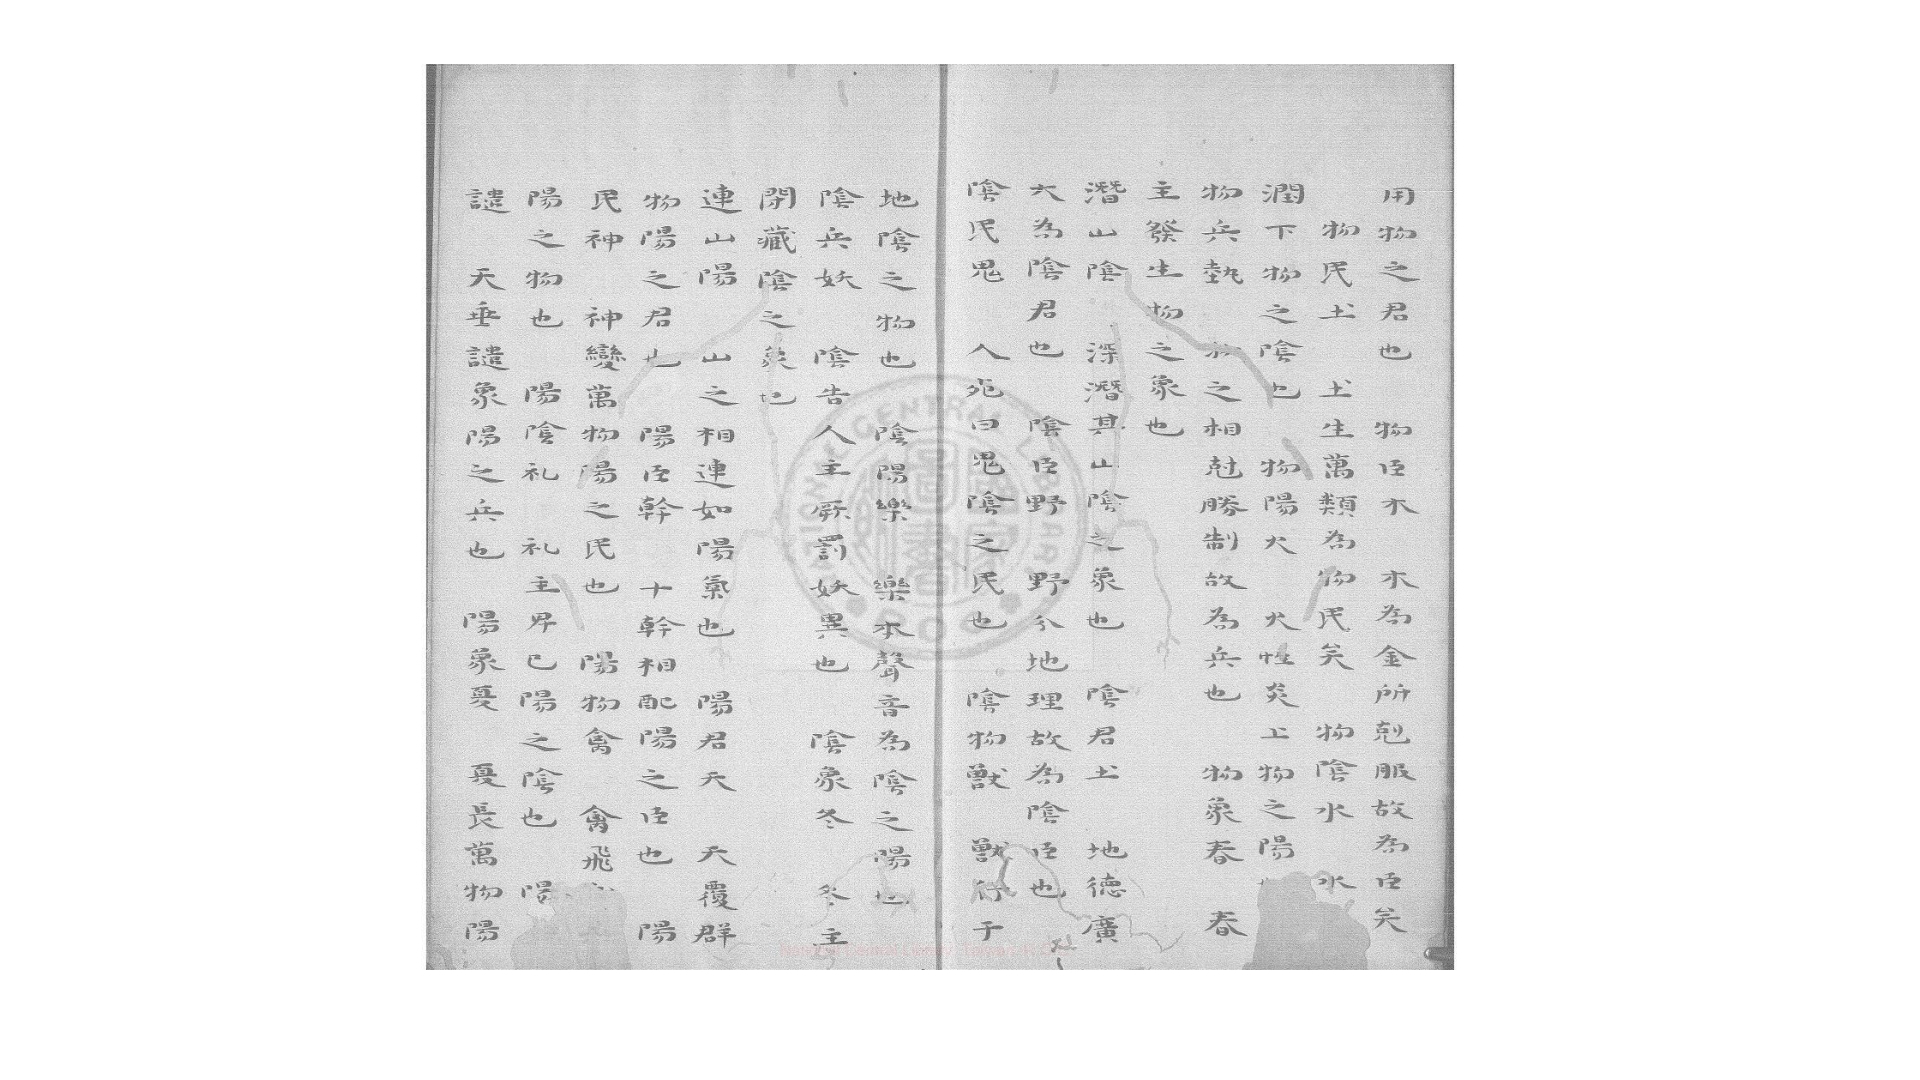 用物之君也 物臣木 木為金所剋服故為臣矣
物民土 土生萬類為物民矣 物陰水 水
潤下物之陰也 物陽火 火性炎上物之陽
物兵執 物之相尅勝制故為兵也 物象春 春
主發生物之象也
潛山陰 深潛其山陰之象也 陰君土 地德廣
大為陰君也 陰臣野 野分地理故為陰臣也
陰民鬼 人死曰鬼陰之民也 陰物獸 獸行于
地陰之物也 陰陽樂 樂本聲音為陰之陽也
陰兵妖 陰告人主 罰妖異也 陰象冬 冬主
閉藏陰之象也
連山陽 山之相連如陽氣也 陽君天 天覆群
物陽之君也 陽臣幹 十幹相配陽之臣也 陽
民神 神變萬物陽之民也 陽物禽 禽飛
陽之物也 陽陰礼 礼主卑己陽之陰也 陽
譴 天垂譴象陽之兵也 陽象夏 夏長萬物陽
NATIONAL CENTRAL LIBRARY
ROC